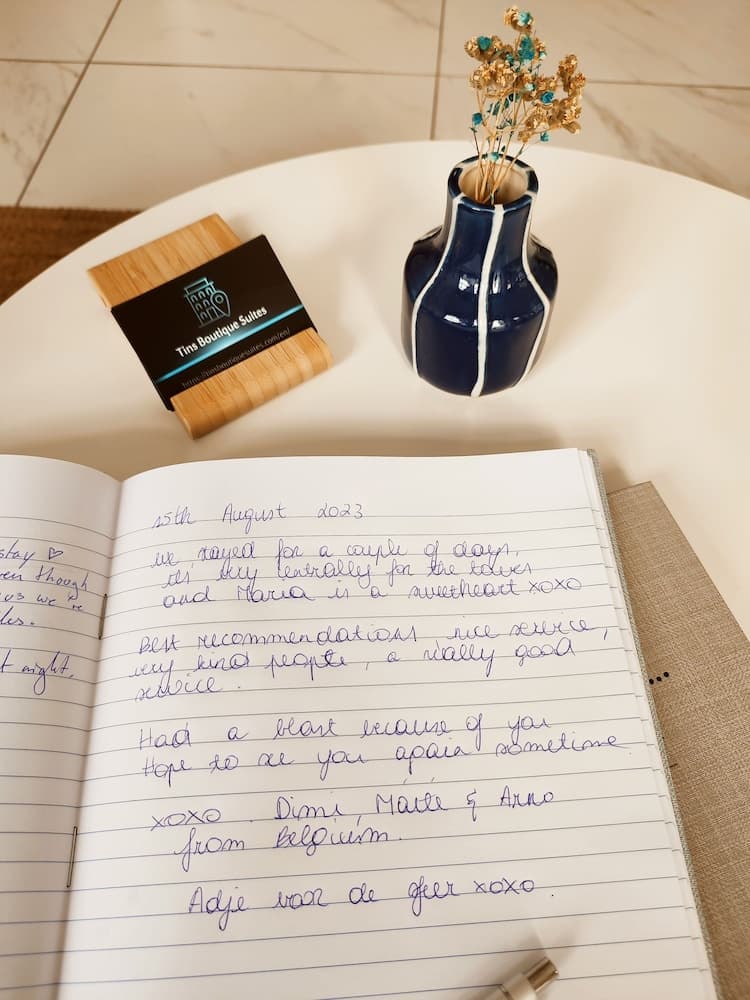 Tins Boutique Suites
https://tinsboutiquesuites.com/en/
stay ♡
even though
us we're
night.
15th August 2023
we stayed for a couple of days,
it's very centrally for the
and Maria is a sweetheart xoxo
Best recommendations, nice service,
very kind people, a really good
service.
Had a blast because of you
Hope to see you again sometime
xoxo Dimi, & Arno
from Belgium.
Adje voor de sfeer xoxo.